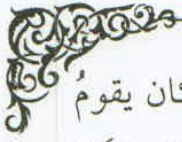 كان يقومُ